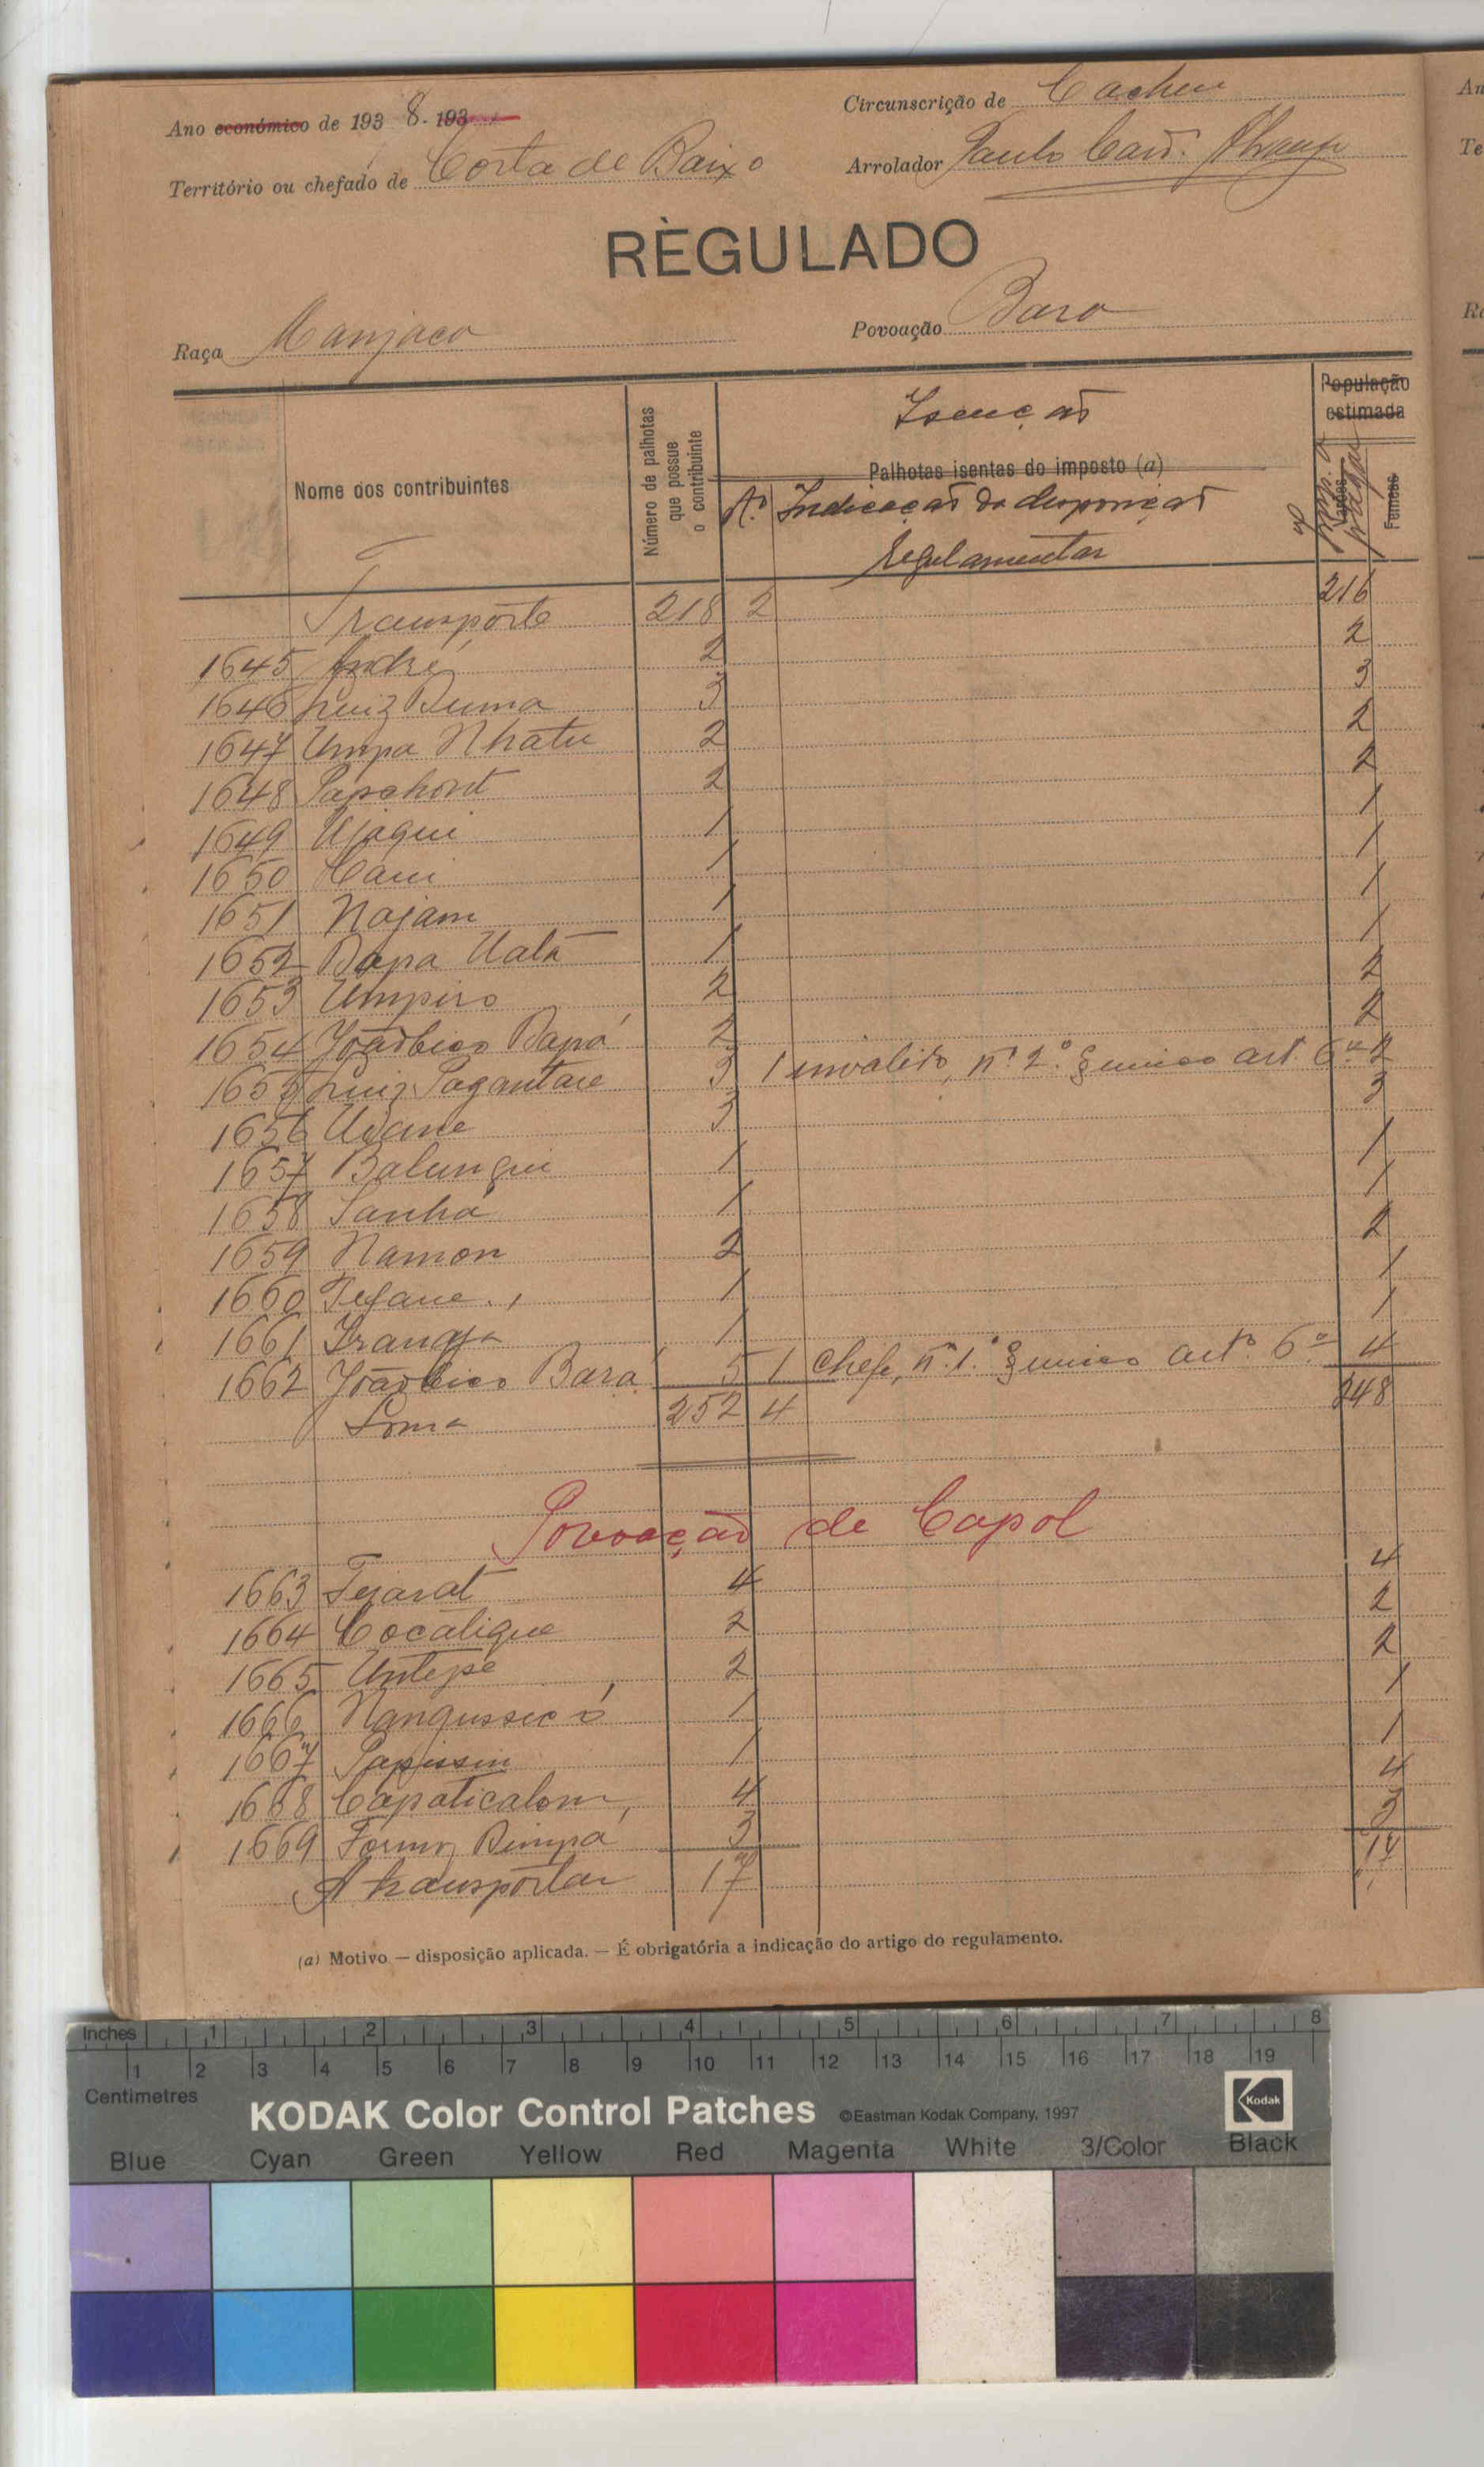 Ano económico de 193 8-193
Circunscrição de Cacheu
Território ou chefado de Costa de Baixo
Arrolador Paulo
RÈGULADO
Raça Manjaco
Povoação Bara
Nome dos contribuintes
Número de palhotas que possue o contribuinte
Isenção
Palhotas isentas do imposto (a)
N.º Indicação da disposição regulamentar
População estimada
Femeas
Transporte 218 2 216
1645 André 2 2
1646 Luiz Duma 3 3
1647 Umpa Nhatu 2 2
1648 Papehont 2 2
1649 Ujaqui 1 1
1650 Caui 1 1
1651 Najam 1 1
1652 Dapa Ualá 1 1
1653 Umpiro 2 2
1654 Joãobico Dapá 2 2
1655 Luiz Pagantace 3 1 invalido, n.º 2.º § unico art. 6.º 2
1656 Udane 3 3
1657 Balunqui 1 1
1658 Sanhá 1 1
1659 Namon 2 2
1660 Tejane 1 1
1661 1 1
1662 Joãobico Bara 5 1 chefe, n.º 1.º § unico art.º 6.º 4
Soma 252 4 248
Povoação de Capol
1663 Tejarat 4 4
1664 Cocalique 2 2
1665 Untepe 2 2
1666 Nangussicó 1 1
1667 Papissim 1 1
1668 Capaticalom 4 4
1669 Dimpá 3 3
A transportar 17 17
(a) Motivo — disposição aplicada. — É obrigatória a indicação do artigo do regulamento.
Inches 1 2 3 4 5 6 7 8
1 2 3 4 5 6 7 8 9 10 11 12 13 14 15 16 17 18 19
Centimetres
KODAK Color Control Patches ©Eastman Kodak Company, 1997 Kodak
Blue Cyan Green Yellow Red Magenta White 3/Color Black